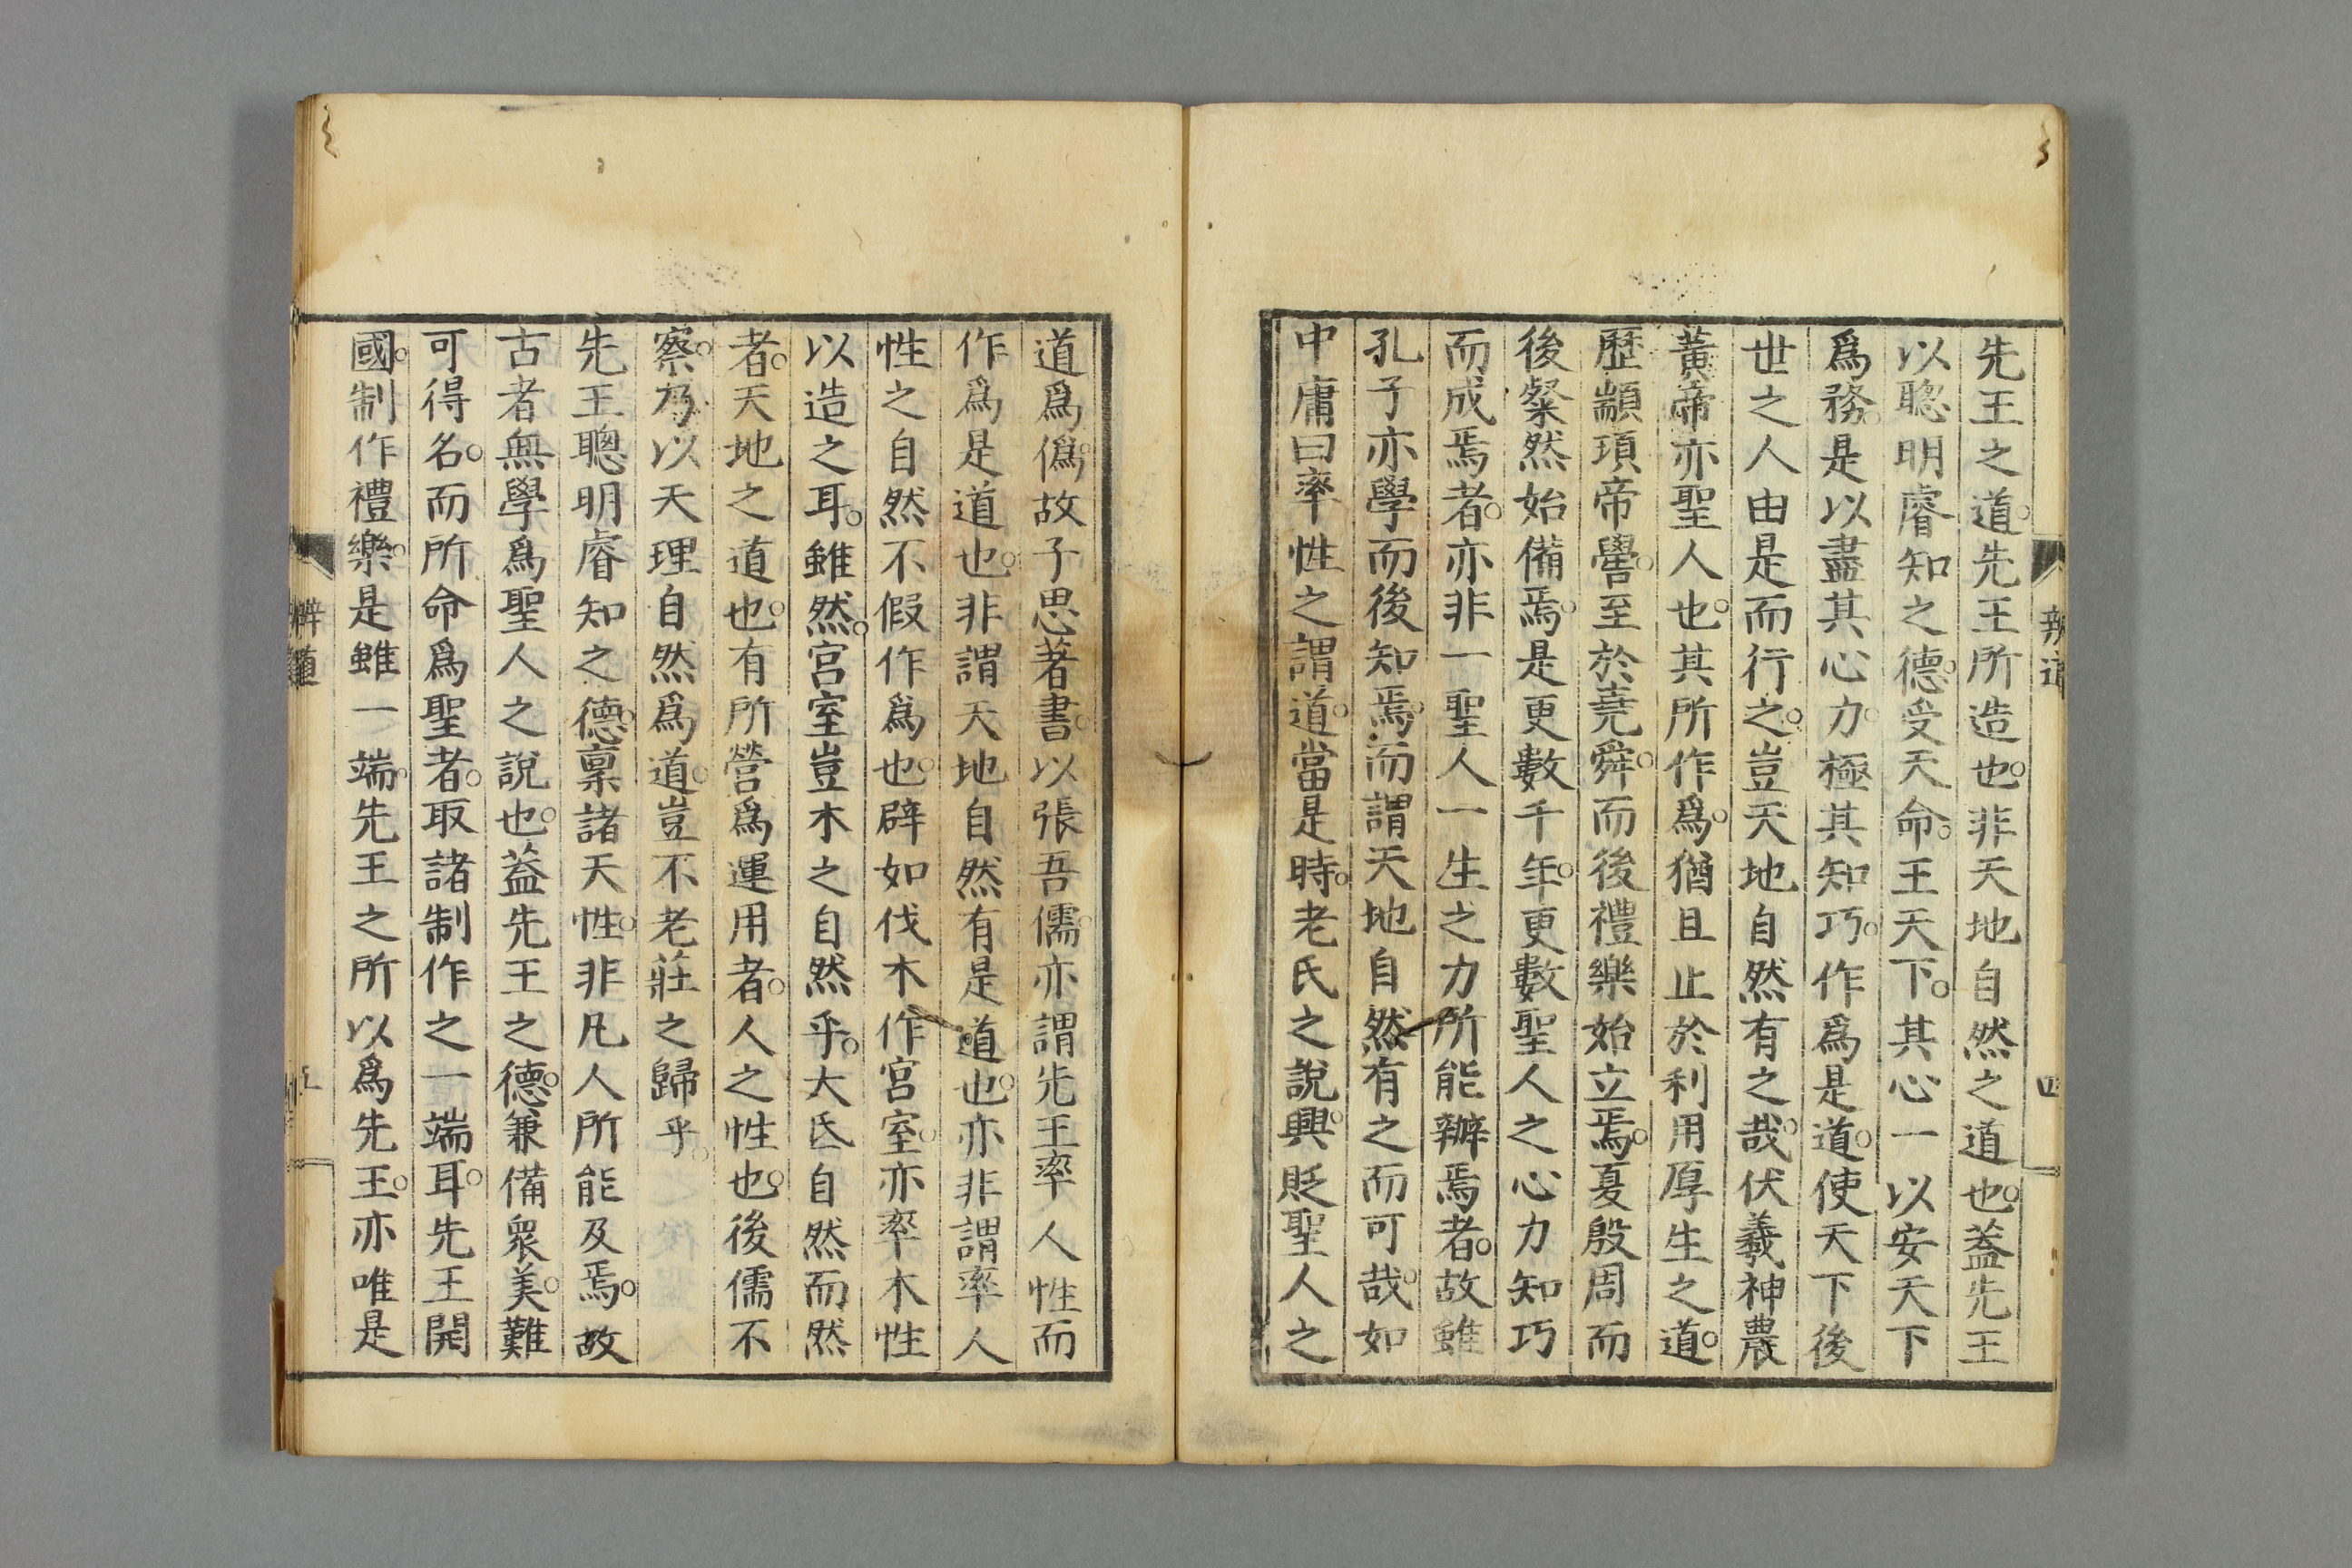 先王之道。先王所造也。非天地自然之道也。蓋先王
以聰明睿知之德。受天命。王天下。其心一以安天下
爲務。是以盡其心力。極其知巧。作爲是道。使天下後
世之人由是而行之。豈天地自然有之哉。伏羲神農
黃帝亦聖人也。其所作爲。猶且止於利用厚生之道。
歷顓頊帝嚳。至於堯舜。而後禮樂始立焉。夏殷周而
後粲然始備焉。是更數千年。更數聖人之心力知巧
而成焉者。亦非一聖人一生之力所能辦焉者。故雖
孔子亦學而後知焉。而謂天地自然有之而可哉。如
中庸曰率性之謂道。當是時。老氏之說興。貶聖人之
辨道
四
道爲僞。故子思著書。以張吾儒。亦謂先王率人性而
作爲是道也。非謂天地自然有是道也。亦非謂率人
性之自然不假作爲也。辟如伐木作宮室。亦率木性
以造之耳。雖然。宮室豈木之自然乎。大氐自然而然
者。天地之道也。有所營爲運用者。人之性也。後儒不
察。乃以天理自然爲道。豈不老莊之歸乎。
先王聰明睿知之德。稟諸天性。非凡人所能及焉。故
古者無學爲聖人之說也。蓋先王之德。兼備衆美。難
可得名。而所命爲聖者。取諸制作之一端耳。先王開
國。制作禮樂。是雖一端。先王之所以爲先王。亦唯是
辨道
五